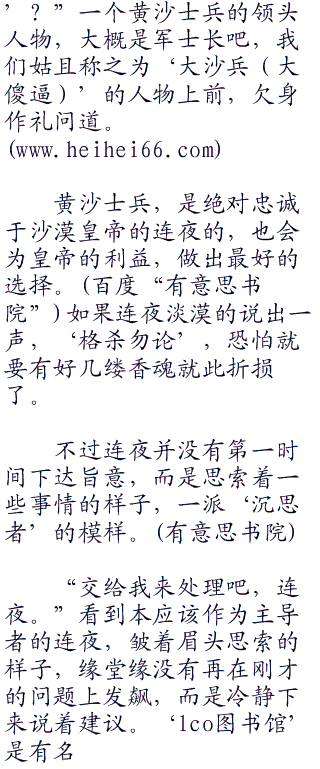 ’？”一个黄沙士兵的领头
人物，大概是军士长吧，我
们姑且称之为‘大沙兵（大
傻逼）’的人物上前，欠身
作礼问道。
(www.heihei66.com)
黄沙士兵，是绝对忠诚
于沙漠皇帝的连夜的，也会
为皇帝的利益，做出最好的
选择。(百度“有意思书
院”)如果连夜淡漠的说出一
声，‘格杀勿论’，恐怕就
要有好几缕香魂就此折损
了。
不过连夜并没有第一时
间下达旨意，而是思索着一
些事情的样子，一派‘沉思
者’的模样。(有意思书院)
“交给我来处理吧，连
夜。”看到本应该作为主导
者的连夜，皱着眉头思索的
样子，缘堂缘没有再在刚才
的问题上发飙，而是冷静下
来说着建议。‘lco图书馆’
是有名